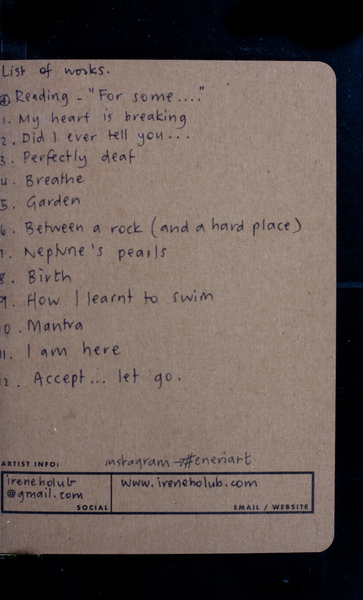 List of works.
④ Reading - "For some...."
1. My heart is breaking
2. Did I ever tell you...
3. Perfectly deaf
4. Breathe
5. Garden
6. Between a rock (and a hard place)
7. Neptune's pearls
8. Birth
9. How I learnt to swim
10. Mantra
11. I am here
12. Accept... let go.
instagram → #eneriart
ARTIST INFO:
ireneholub
@gmail.com
SOCIAL
www.ireneholub.com
EMAIL / WEBSITE